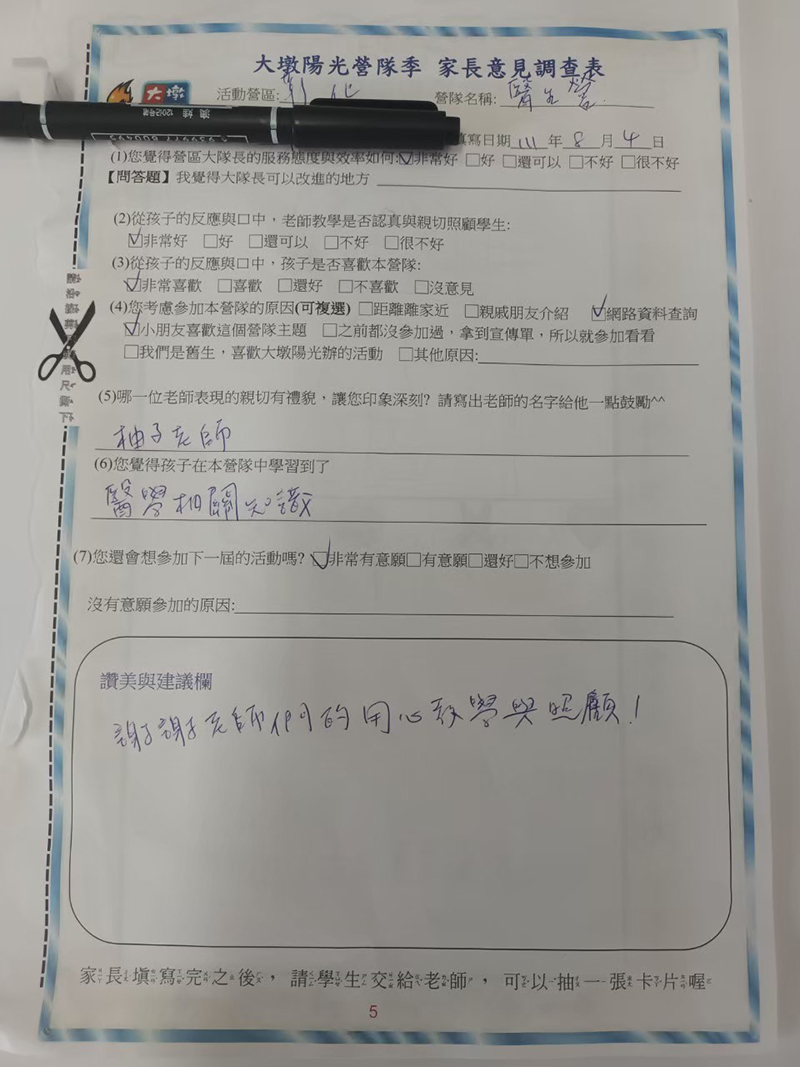 大墩陽光營隊季 家長意見調查表
大墩 活動營區:彰化 營隊名稱:醫生營
填寫日期 111 年 8 月 4 日
(1)您覺得營區大隊長的服務態度與效率如何:☑非常好 □好 □還可以 □不好 □很不好
【問答題】我覺得大隊長可以改進的地方
(2)從孩子的反應與口中，老師教學是否認真與親切照顧學生:
☑非常好 □好 □還可以 □不好 □很不好
(3)從孩子的反應與口中，孩子是否喜歡本營隊:
☑非常喜歡 □喜歡 □還好 □不喜歡 □沒意見
(4)您考慮參加本營隊的原因(可複選) □距離離家近 □親戚朋友介紹 ☑網路資料查詢
☑小朋友喜歡這個營隊主題 □之前都沒參加過，拿到宣傳單，所以就參加看看
□我們是舊生，喜歡大墩陽光辦的活動 □其他原因:
(5)哪一位老師表現的親切有禮貌，讓您印象深刻? 請寫出老師的名字給他一點鼓勵^^
柚子老師
(6)您覺得孩子在本營隊中學習到了
醫學相關知識
(7)您還會想參加下一屆的活動嗎? ☑非常有意願□有意願□還好□不想參加
沒有意願參加的原因:
讚美與建議欄
謝謝老師們的用心教學與照顧!
家長填寫完之後，請學生交給老師，可以抽一張卡片喔
5